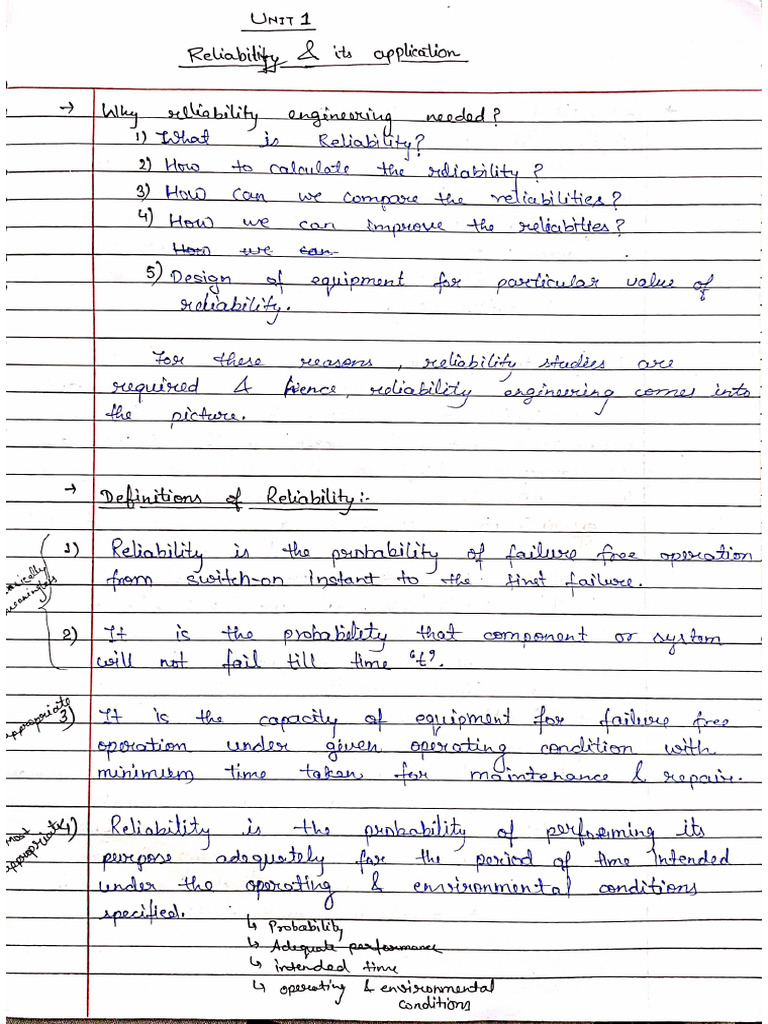 UNIT 1
Reliability & its application
→ Why reliability engineering needed?
1) What is Reliability?
2) How to calculate the reliability?
3) How can we compare the reliabilities?
4) How we can improve the reliabities?
How we can
5) Design of equipment for particular value of
reliability.
For these reasons, reliability studies are
required & hence, reliability engineering comes into
the picture.
→ Definitions of Reliability:-
1) Reliability is the probability of failure free operation
from switch-on instant to the first failure.
2) It is the probability that component or system
will not fail till time 't'.
appropriate 3) It is the capacity of equipment for failure free
operation under given operating condition with
minimum time taken for maintenance & repair.
Most appropriate 4) Reliability is the probability of performing its
purpose adequately for the period of time intended
under the operating & environmental conditions
specified.
↳ Probability
↳ Adequate performance
↳ intended time
↳ operating & environmental
conditions